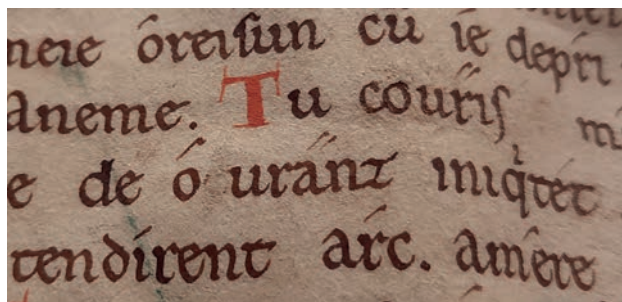 meie óreiſun cū ie depri
aneme. Tu couris m
e de ó uranz iniqͥtet
tendirent arc. amere